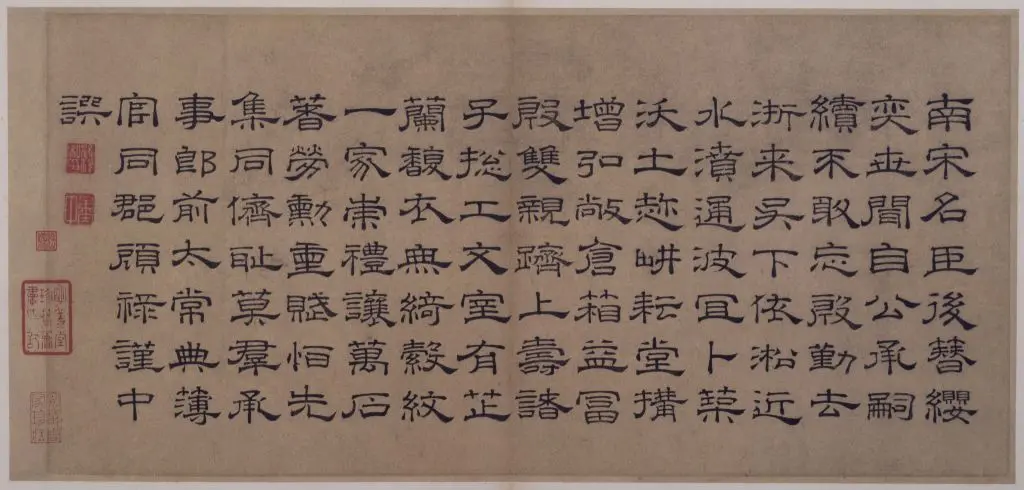 南宋名臣後簪纓
奕世間自公承嗣
續不敢忘殷勤去
浙来吳下依淞近
水濆通波宜卜築
沃土趂畊耘堂搆
增弘敞倉箱益冨
殷雙親躋上壽諸
子摠工文室有芷
蘭馥衣無綺縠紋
一家崇禮讓萬石
著勞勳重賦怕先
集同儕耻莫羣承
事郎前太常典薄
官同郡顧祿謹中
譔